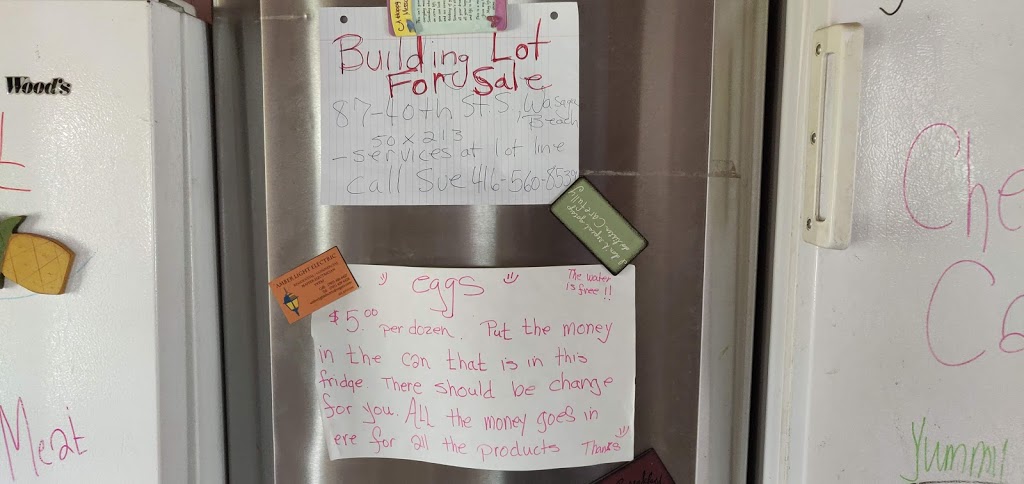 Wood's
Meat
Building Lot
For Sale
87-40th St S, Wasaga
Beach
50 x 213
- services at lot line
call Sue 416-560-8539
AMBER LIGHT ELECTRIC
eggs
The water
is free!!
$5.00 per dozen. Put the money
in the can that is in this
fridge. There should be change
for you. All the money goes in
ere for all the products Thanks
Che
Ca
Yummy